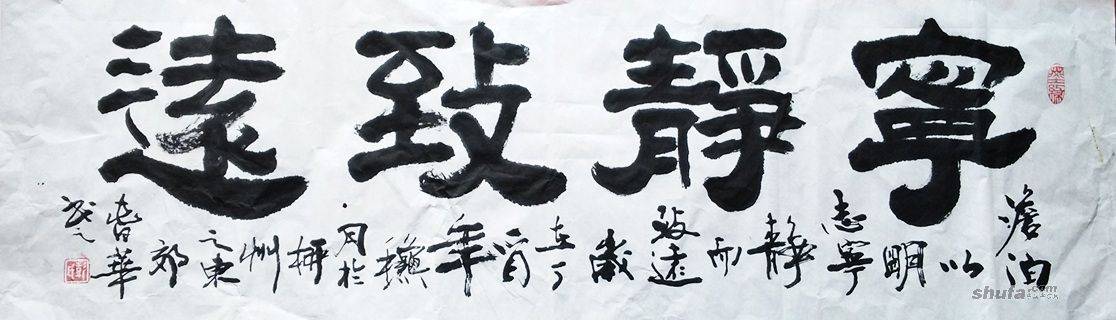 寧靜致遠
澹泊
以
明
志寧
靜
而
致遠
歲
在丁
酉
年
穐
月於
柳
州
之東
郊
春華
shufa.com